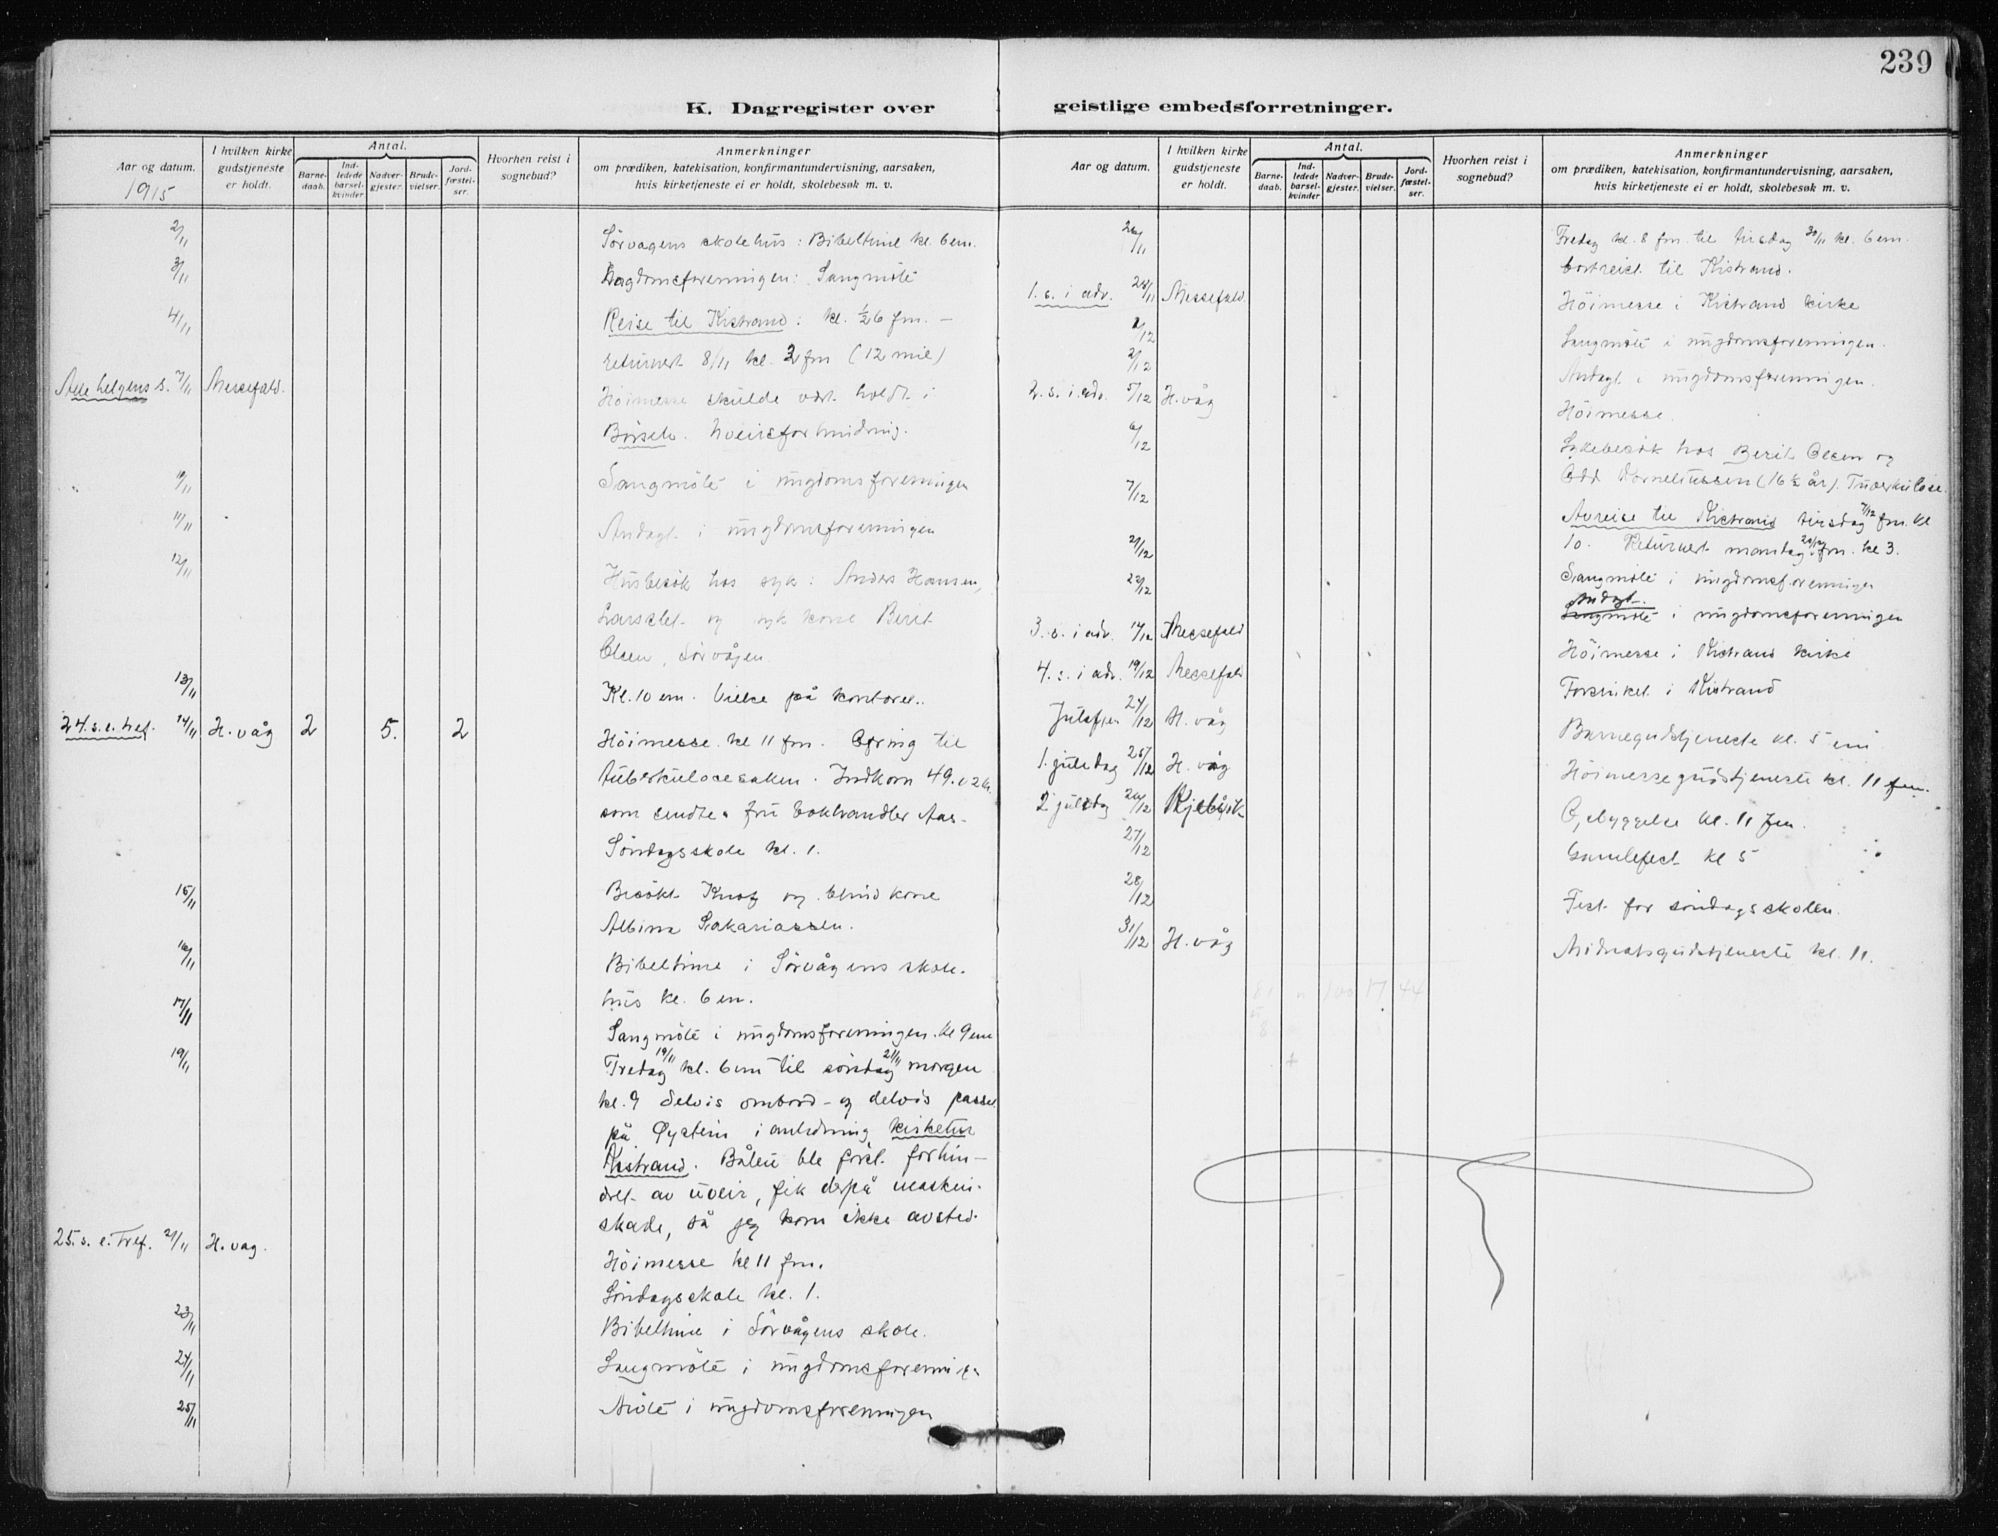 239
K. Dagregister over geistlige embedsforretninger.
Aar og datum.
1915
I hvilken kirke gudstjeneste er holdt.
Antal.
Barne-daab.
Ind-ledede barsel-kvinder
Nadver-gjester.
Brude-vielser.
Jord-fæstel-ser.
Hvorhen reist i sognebud?
Anmerkninger
om prædiken, katekisation, konfirmantundervisning, aarsaken,
hvis kirketjeneste ei er holdt, skolebesøk m. v.
2/11 Sørvagens skolehus: Bibeltime kl. 6 em.
3/11 Sangmöte
4/11 Reise til Kistrand: kl. ½6 fm. –
returnert 8/11 kl. 3 fm (12 mil)
Alle helgens s. 7/11 Messefald. Höimesse skulde vært holdt i
Börselv.
9/11 Sangmöte i ungdomsforeningen
11/11 Andagt i ungdomsforeningen
12/11 Husbesök hos syk: Anders Hansen,
og syk kone Berit
Olsen, Sörvågen
13/11 Kl. 10 em. Vielse på kontoret.
24. s. e. tref. 14/11 H. våg 2 5. 2 Höimesse kl 11 fm. Ofring til
tuberkulosesaken. Indkom 49.02 kr.
som sendtes fru bokhandler Aas.
Söndagsskole kl. 1.
15/11 Besökt Knut og blind kone
Albina Sakariassen.
16/11 Bibeltime i Sörvågens skole-
hus kl. 6 em.
17/11 Sangmöte i ungdomsforeningen. kl 9 em
19/11 Fredag 19/11 kl. 6 em til söndag 21/11 morgen
kl. 9 delvis ombord – og delvis passet
på Øystein i anledning kirketur
Kistrand. Båten ble först forhin-
dret av uveir, fik derpå maskin-
skade, så jeg kom ikke avsted.
25. s. e. Tref. 21/11 H. vag. Höimesse kl 11 fm.
Söndagsskole kl. 1.
23/11 Bibeltime i Sörvågens skole.
24/11 Sangmöte i ungdomsforeningen
25/11 Möte i ungdomsforeningen
Aar og datum.
I hvilken kirke gudstjeneste er holdt.
Antal.
Barne-daab.
Ind-ledede barsel-kvinder
Nadver-gjester.
Brude-vielser.
Jord-fæstel-ser.
Hvorhen reist i sognebud?
Anmerkninger
om prædiken, katekisation, konfirmantundervisning, aarsaken,
hvis kirketjeneste ei er holdt, skolebesøk m. v.
26/11 Fredag kl. 8 fm. til tirsdag 30/11 kl. 6 em.
bortreist til Kistrand.
1. s. i adv. 28/11 Messefald. Höimesse i Kistrand kirke
1/12 Sangmöte i ungdomsforeningen.
2/12 Andagt i ungdomsforeningen.
2. s. i adv. 5/12 H. våg Höimesse.
6/12 Sykebesök hos Berit Olsen og
Odd Korneliussen (16½ år). Tuberkulose.
7/12 Avreise til Kistrand tirsdag 7/12 fm. kl
10. Returnert mandag 20/12 fm. kl 3.
21/12 Sangmöte i ungdomsforeningen
23/12 Sangmöte Andagt i ungdomsforeningen
3. s. i adv. 12/12 Messefald Höimesse i Kistrand kirke
4. s. i adv. 19/12 Messefald Forsinket i Kistrand
Juleaften 24/12 H. våg Barnegudstjeneste kl. 5 em
1. juledag 25/12 H. våg Höimessegudstjeneste kl. 11 fm.
2 juledag 26/12 Kjelvik Opbyggelse kl. 11 fm.
27/12 Gamlefest kl 5
28/12 Fest for söndagsskolen.
31/12 H. våg Midnatsgudstjeneste kl. 11.
17 44